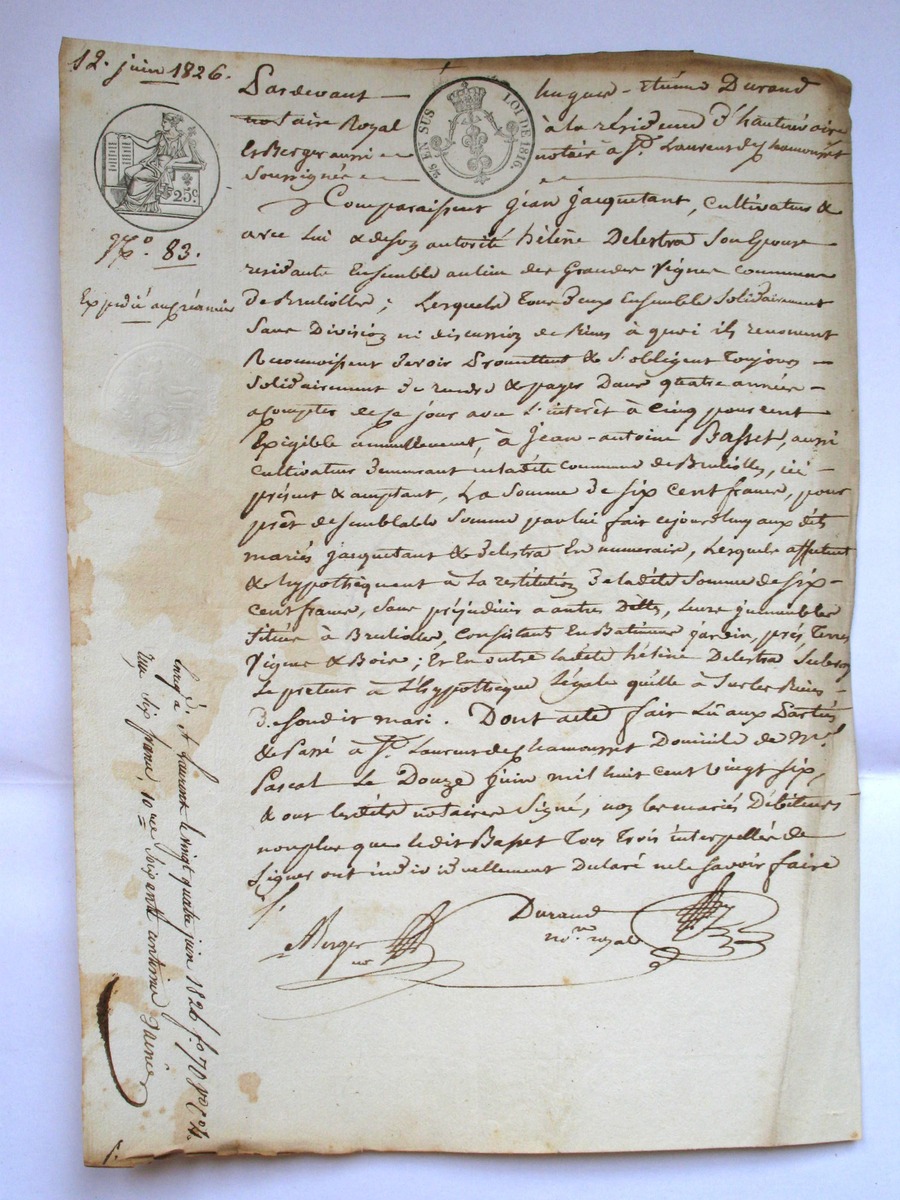 12. juin 1826.
Pardevant hugues-etiéne Durand
notaire Royal à la résidence d'hauterivoire
Et Berger aussi notaire à St. Laurent de Chamousset
soussignés
25 EN SUS LOI DE 1816.
25c.
No. 83.
Expédié au créancier
Comparaissent jean jacquetant, cultivateur &
avec lui & de son autorité hélène Delestra son Epouse
residants Ensemble au lieu des Grandes Vignes commune
de Brulliolles; Lesquels tous deux Ensemble solidairement
sans Division ni discussion de Biens à quoi ils renoncent
Reconnoissent devoir Promettent & s'obligent toujours
solidairement de rendre & payer Dans quatre années
acompter de ce jour avec L'interêt à cinq pour cent
Exigible annuellement, à Jean-antoine Basset, aussi
cultivateur demeurant en ladite commune de Brulliolles, ici
présent & acceptant, La Somme de six cent francs, pour
prêt de semblable somme par lui fait cejourd'huy aux dits
mariés jacquetant & delestra En numeraire, Lesquels affectent
& hypothèquent à La restitution de ladite somme de six
cent francs, sans préjudicier a autres Dettes, leurs immeubles
situés à Brulliolles, consistants En Batiments jardin, prés Terres
Vignes & Bois; Et En outre ladite hélène Delestra subroge
Le preteur à L'hypothèque légale qu'elle à sur les Biens
de sondit mari. Dont acte fait Lû aux Parties
& Passé à St. Laurent de Chamousset Domicile de Me.
Pascal Le Douze juin mil huit cent vingt six,
& ont lesdits notaires signé, non les mariés Débiteurs
non plus que ledit Basset tous trois interpellés de
signer ont individuellement Declaré ne le savoir faire
Berger
nre
Durand
nore. royal
Enrgé à St Laurent le vingt quatre juin 1826 fo. 70
reçu six francs, 10me soixante centimes